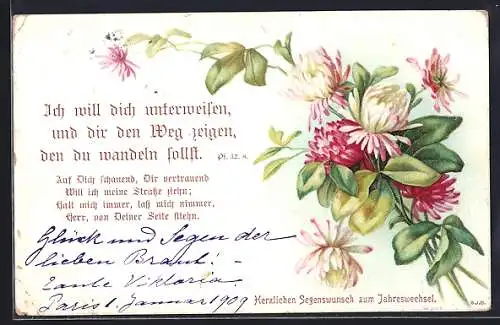 Ich will dich unterweisen,
und dir den Weg zeigen,
den du wandeln sollst. Ps. 32. 8.
Auf Dich schauend, Dir vertrauend
Will ich meine Straße ziehn;
Halt mich immer, laß mich nimmer,
Herr, von Deiner Seite fliehn.
Glück und Segen der
lieben Braut! –
Tante Viktoria.
Paris 1. Januar 1909
Herzlichen Segenswunsch zum Jahreswechsel.